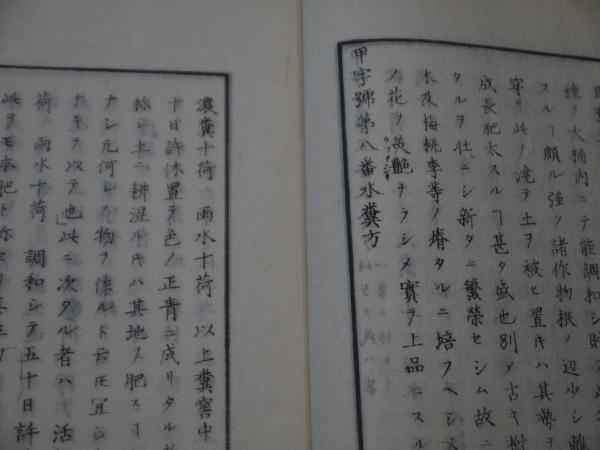 煉ノ大桶内ニテ能調和シ則
スルヿ頗ル強ク諸作物根ノ辺少シ離
穿リ此ヲ澆テ土ヲ被ヒ置キハ其
成長肥太スルヿ甚タ盛也別ノ古キ樹
タルヲ壮ニシ新タニ繁榮セシム故ニ
木及梅桃李等ノ瘠タルニ培フヘシ文
ノ花ヲ羙艶ナラシメ實ヲ上品ニスル
甲字號第八番水糞方
濃糞十荷 雨水十荷 以上糞窖中
十日許休置テ色ノ正青ニ成リタル
称シ上ニ耕混ルキハ其地ヲ肥スヿ
ナシ凡何レノ物ヲ作ルト云𪜈宜シ
ナキヲ以テ也此ニ次タル者ハ 活
荷 雨水十荷 調和シテ五十日許
此ヲモ本肥ト称